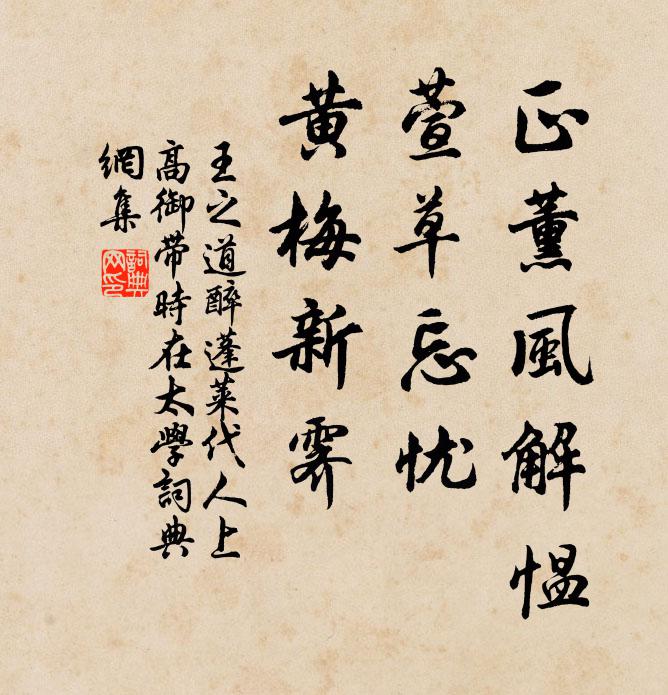 正薰風解愠
萱草忘忧
黄梅新霽
王之道醉蓬萊代人上
高御带時在太學詞典
網集
詞典
网印